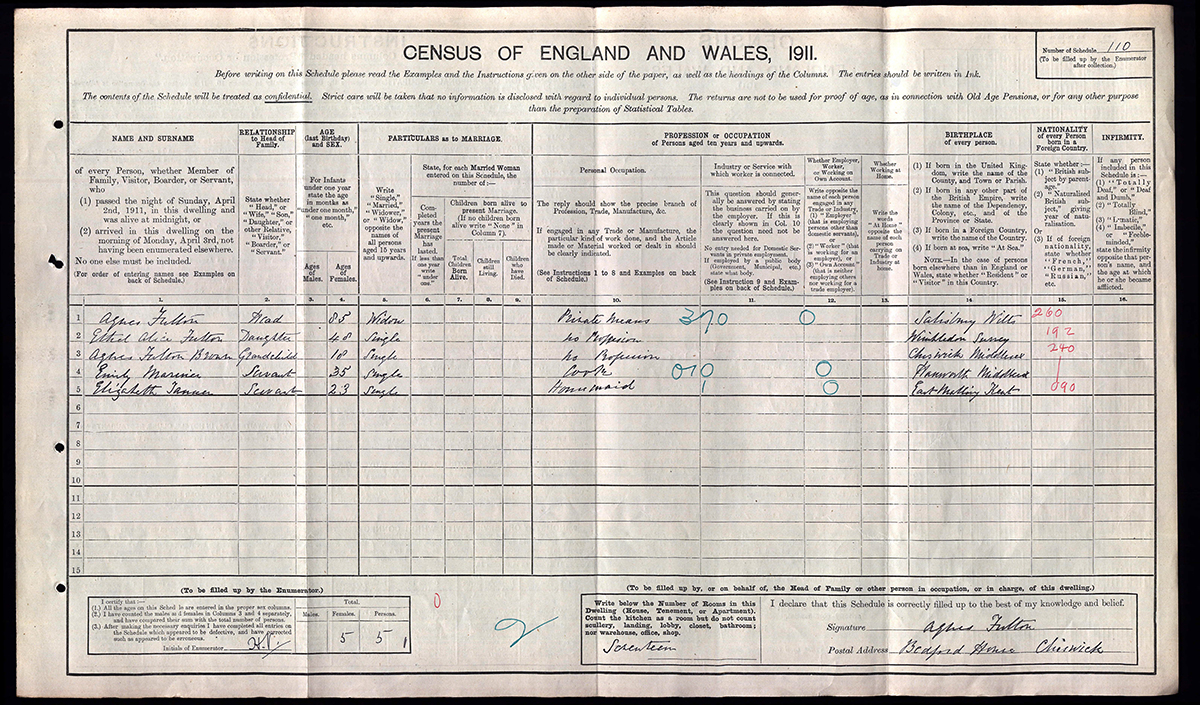 CENSUS OF ENGLAND AND WALES, 1911.
Number of Schedule 110
(To be filled up by the Enumerator
after collection.)
Before writing on this Schedule please read the Examples and the Instructions given on the other side of the paper, as well as the headings of the Columns. The entries should be written in Ink.
The contents of the Schedule will be treated as confidential. Strict care will be taken that no information is disclosed with regard to individual persons. The returns are not to be used for proof of age, as in connection with Old Age Pensions, or for any other purpose
than the preparation of Statistical Tables.
NAME AND SURNAME
of every Person, whether Member of
Family, Visitor, Boarder, or Servant,
who
(1) passed the night of Sunday, April
2nd, 1911, in this dwelling and
was alive at midnight, or
(2) arrived in this dwelling on the
morning of Monday, April 3rd, not
having been enumerated elsewhere.
No one else must be included.
(For order of entering names see Examples on
back of Schedule.)
RELATIONSHIP
to Head of
Family.
State whether
"Head," or
"Wife," "Son,"
"Daughter," or
other Relative,
"Visitor,"
"Boarder," or
"Servant."
AGE
(last Birthday)
and SEX.
For Infants
under one year
state the age
in months as
"under one month,"
"one month,"
etc.
Ages
of
Males.
Ages
of
Females.
PARTICULARS as to MARRIAGE.
Write
"Single,"
"Married,"
"Widower,"
or "Widow,"
opposite the
names of
all persons
aged 15 years
and upwards.
State, for each Married Woman
entered on this Schedule, the
number of:—
Completed
years the
present
Marriage
has
lasted.
If less than
one year
write
"under
one."
Children born alive to
present Marriage.
(If no children born
alive write "None" in
Column 7).
Total
Children
Born
Alive.
Children
still
Living.
Children
who
have
Died.
PROFESSION or OCCUPATION
of Persons aged ten years and upwards.
Personal Occupation.
The reply should show the precise branch of
Profession, Trade, Manufacture, &c.
If engaged in any Trade or Manufacture, the
particular kind of work done, and the Article
made or Material worked or dealt in should
be clearly indicated.
(See Instructions 1 to 8 and Examples on back
of Schedule.)
Industry or Service with
which worker is connected.
This question should gener-
ally be answered by stating
the business carried on by
the employer. If this is
clearly shown in Col. 10
the question need not be
answered here.
No entry needed for Domestic Ser-
vants in private employment.
If employed by a public body
(Government, Municipal, etc.)
state what body.
(See Instruction 9 and Exam-
ples on back of Schedule.)
Whether Employer,
Worker,
or Working on
Own Account.
Write opposite the
name of each person
engaged in any
Trade or Industry,
(1) "Employer"
(that is employing
persons other than
domestic servants),
or
(2) "Worker" (that
is working for an
employer), or
(3) "Own Account"
(that is neither
employing others
nor working for a
trade employer).
Whether
Working at
Home.
Write the
words
"At Home"
opposite the
name of each
person
carrying on
Trade or
Industry at
home.
BIRTHPLACE
of every person.
(1) If born in the United King-
dom, write the name of the
County, and Town or Parish.
(2) If born in any other part of
the British Empire, write
the name of the Dependency,
Colony, etc., and of the
Province or State.
(3) If born in a Foreign Country,
write the name of the Country.
(4) If born at sea, write "At Sea."
NOTE.—In the case of persons
born elsewhere than in England or
Wales, state whether "Resident" or
"Visitor" in this Country.
NATIONALITY
of every Person
born in a
Foreign Country.
State whether:—
(1) "British sub-
ject by parent-
age,"
(2) "Naturalised
British
subject," giving
year of natu-
ralisation.
Or
(3) If of foreign
nationality,
state whether
"French,"
"German,"
"Russian,"
etc.
INFIRMITY.
If any person
included in this
Schedule is:—
(1) "Totally
Deaf," or "Deaf
and Dumb,"
(2) "Totally
Blind,"
(3) "Lunatic,"
(4) "Imbecile,"
or "Feeble-
minded,"
state the infirmity
opposite that per-
son's name, and
the age at which
he or she became
afflicted.
1. 2. 3. 4. 5. 6. 7. 8. 9. 10. 11. 12. 13. 14. 15. 16.
1 Agnes Fulton Head 85 Widow Private Means 370 0 Salisbury Wilts 260
2 Ethel Alice Fulton Daughter 48 Single No Profession Wimbledon Surrey 192
3 Agnes Fulton Brown Grandchild 18 Single No Profession Chiswick Middlesex 240
4 Emily Mariner Servant 35 Single Cook 010 0 Hanworth Middlesex
5 Elizabeth Tanner Servant 23 Single Housemaid 1 0 East Malling Kent 090
6
7
8
9
10
11
12
13
14
15
(To be filled up by the Enumerator.)
I certify that:—
(1.) All the ages on this Schedule are entered in the proper sex columns.
(2.) I have counted the males and females in Columns 3 and 4 separately,
and have compared their sum with the total number of persons.
(3.) After making the necessary enquiries I have completed all entries on
the Schedule which appeared to be defective, and have corrected
such as appeared to be erroneous.
Initials of Enumerator
Total.
Males. Females. Persons.
5 5
0
2
(To be filled up by, or on behalf of, the Head of Family or other person in occupation, or in charge, of this dwelling.)
Write below the Number of Rooms in this
Dwelling (House, Tenement, or Apartment).
Count the kitchen as a room but do not count
scullery, landing, lobby, closet, bathroom;
nor warehouse, office, shop.
Seventeen
I declare that this Schedule is correctly filled up to the best of my knowledge and belief.
Signature Agnes Fulton
Postal Address Bedford House Chiswick